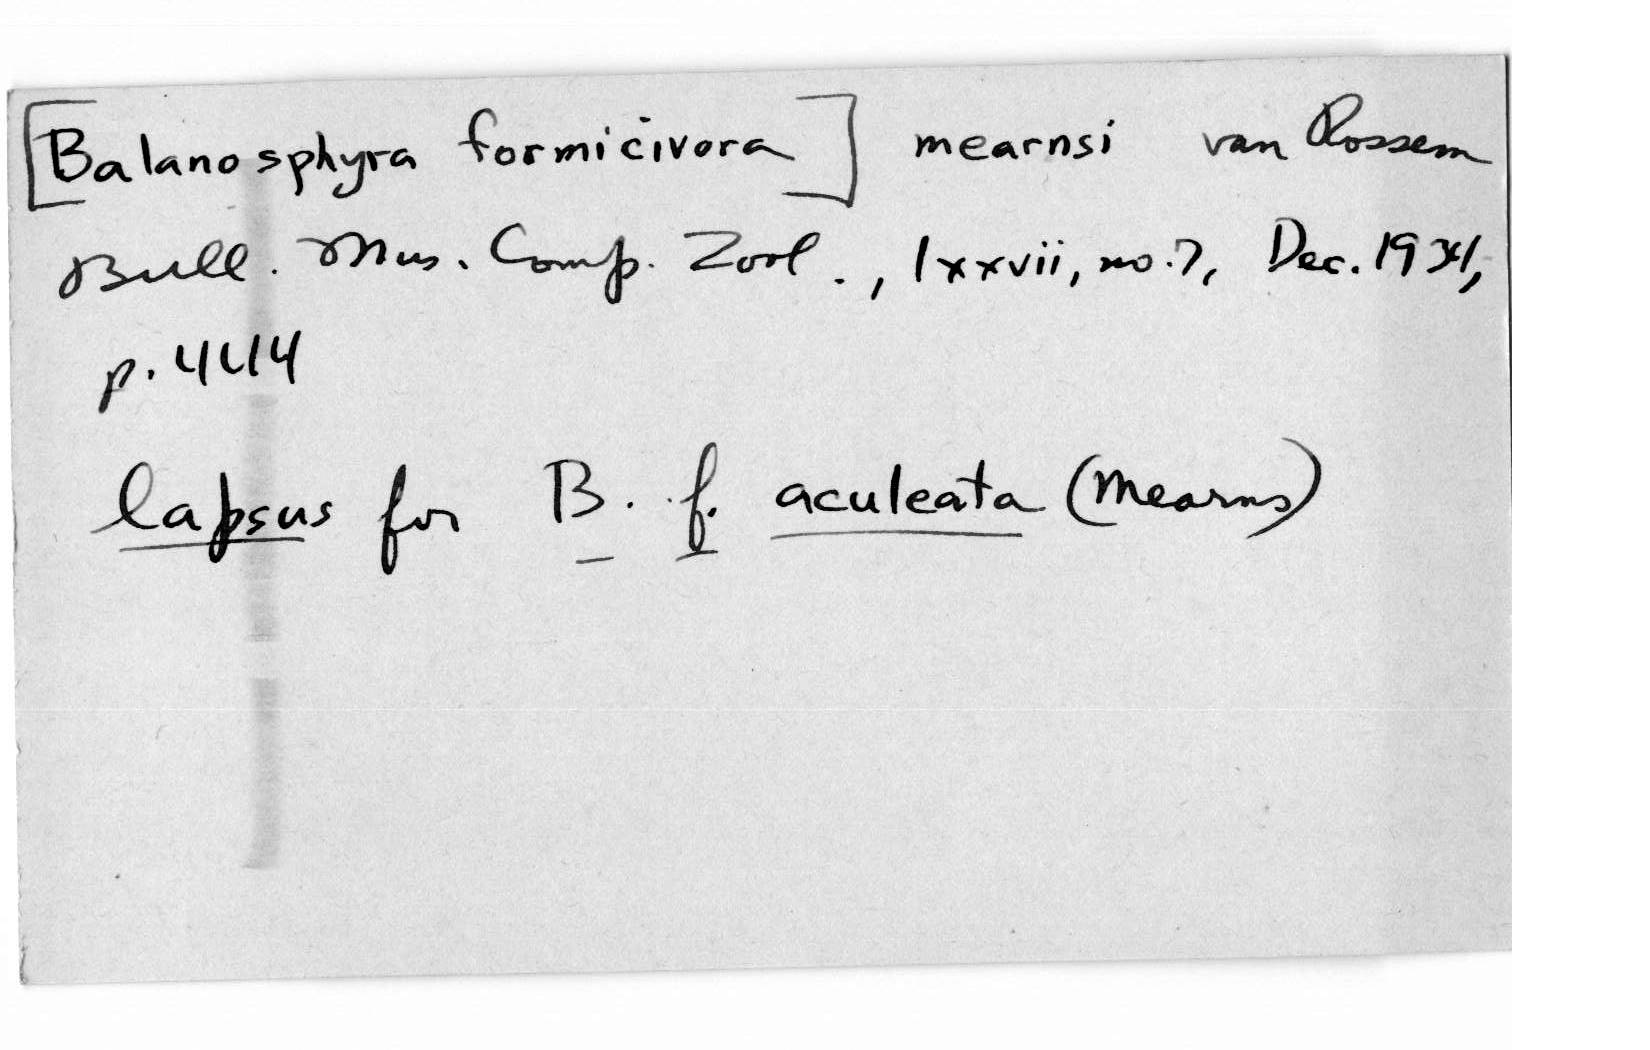 [Balanosphyra formicivora] mearnsi van Rossem
Bull. Mus. Comp. Zool., lxxvii, no. 7, Dec. 1934,
p. 444
lapsus for B. f. aculeata (Mearns)